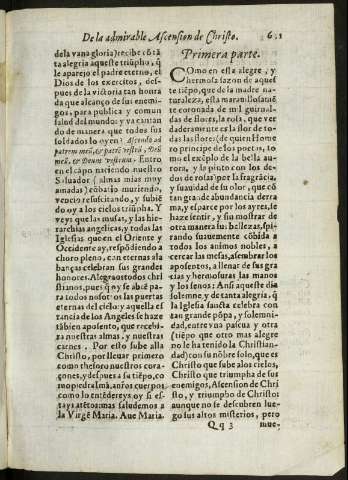 De la admirable Ascension de Christo.
de la vana gloria) recibe cō tā
ta alegria aqueste triūpho, q̄
le aparejo el padre eterno, el
Dios de los exercitos, des-
pues de la victoria tan honra
da que alcanço de sus enemi-
gos, para publica y comun
salud del mundo: y va cantan
do de manera que todos sus
soldados lo oyen: Ascendo ad
patrem meū, & patrē vestrū, Deū
meū, & Deum vestrum. Entro
en el capo naciendo nuestro
Saluador (almas mias muy
amadas) cōbatio muriendo,
vencio resuscitando, y subiē
do oy a los cielos triūpha. Y
veeys que las musas, y las hie-
rarchias angelicas, y todas las
Iglesias que en el Oriente y
Occidente ay, respōdiendo a
choro pleno, con eternas ala
banças celebran sus grandes
honores. Alegraos todos chri
stianos, pues q̄ oy se abrē pa-
ra todos nosotros las puertas
eternas del cielo: y aquella es
tancia de los Angeles se haze
tābien aposento, que recebi-
ra nuestras almas, y nuestras
carnes. Por esto sube alla
Christo, por lleuar primero
como thesoro nuestros cora-
çones, y despues a su tiēpo, co
mo piedra imā, nr̄os cuerpos,
como lo entēdereys oy si es-
tays atētos: mas saludemos a
la Virgē Maria. Aue Maria.
Primera parte.
COmo en esta alegre, y
hermosa sazon de aques
te tiēpo, que de la madre na-
turaleza, esta marauillosa tiē
te coronada de mil guirnal-
das de flores, la rosa, que ver
daderamente es la flor de to-
das las flores: (de quien Home
ro principe de los poetas, to
mo el exēplo de la bella au-
rora, y la pinto con los de-
dos de rosa) por la fragrācia,
y suauidad de su olor, que cō
tan grande abundancia derra
ma, y esparce por los ayres, se
haze sentir, y sin mostrar de
otra manera su belleza, spi-
rando suauemente cōbida a
todos los animos nobles, a
cercar las mesas, a sembrar los
aposentos, a llenar de sus gra
cias y hermosuras las manos
y los senos: Ansi aqueste dia
solemne, y de tanta alegria, q̄
la Iglesia sancta celebra con
tan grande pōpa, y solemni-
dad, entre vna pascua y otra
(tiēpo que otro mas alegre
no le ha tenido la Christian-
dad) con su nōbre solo, que es
Christo que sube a los cielos,
Christo que triumpha de sus
enemigos, Ascension de Chri
sto, y triumpho de Christo:
aunque no se descubren lue-
go sus altos misterios, pero
Qq 3
mue-